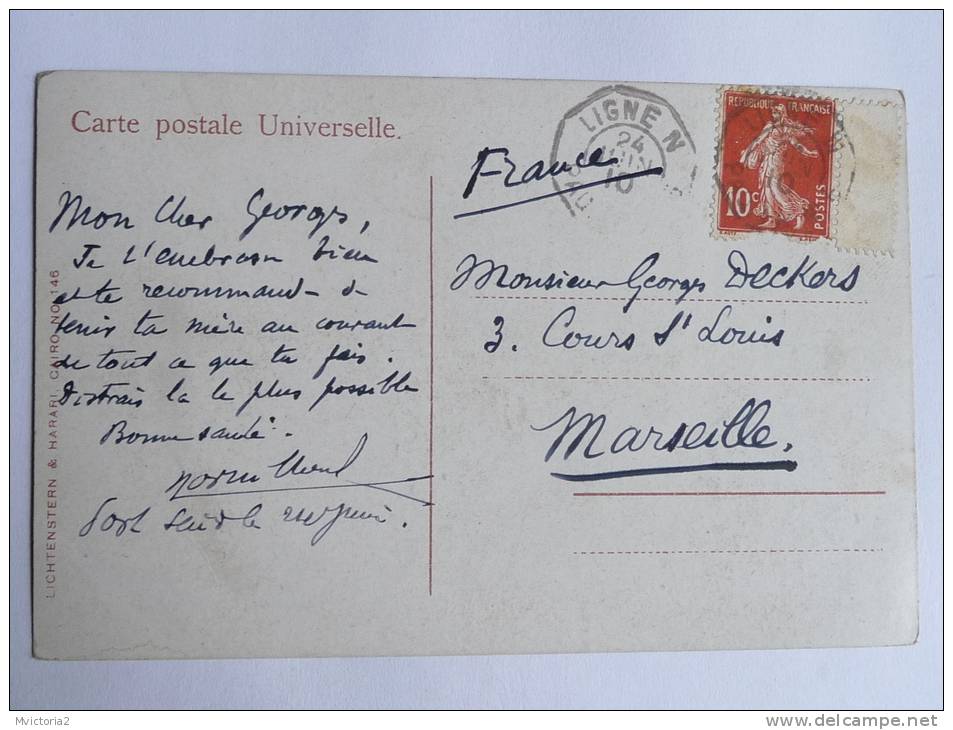 Carte postale Universelle.
LIGNE N
24
JUIN
10
REPUBLIQUE FRANÇAISE
10c
POSTES
France
Mon Cher Georges,
Je t'embrasse bien
et te recommande de
tenir ta mère au courant
de tout ce que tu fais.
Distrais la le plus possible
Bonne santé.
Port Said le juin.
Monsieur Georges Deckers
3. Cours St Louis
Marseille.
LICHTENSTERN & HARARI, CAIRO. NO. 146
Mvictoria2
www.delcampe.net